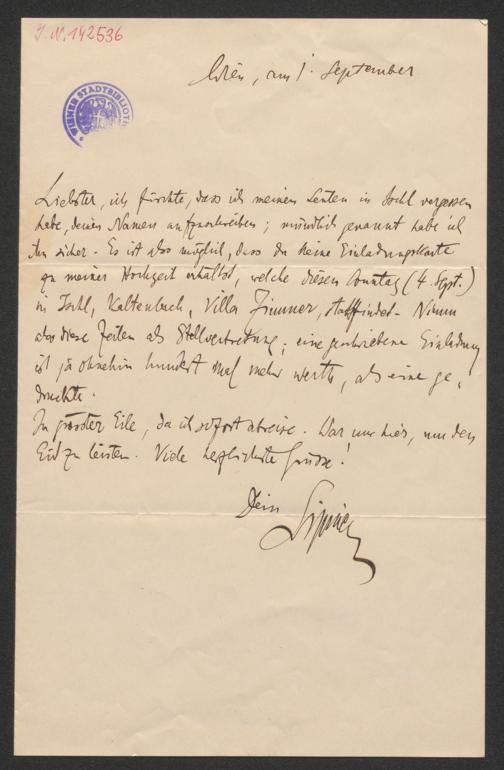 J.N. 142536
WIENER STADTBIBLIOTHEK
Wien, am 1. September
Liebster, ich fürchte, dass ich meinen Leuten in Ischl vergessen
habe, deinen Namen aufzuschreiben; mündlich genannt habe ich
ihn sicher. Es ist also möglich, dass du keine Einladungskarte
zu meiner Hochzeit erhältst, welche diesen Sonntag (4. Sept.)
in Ischl, Kaltenbach, Villa Zimmer, stattfindet. Nimm
also diese Zeilen als Stellvertretung; eine geschriebene Einladung
ist ja ohnehin hundert mal mehr werth, als eine ge-
druckte.
In grösster Eile, da ich sofort abreise. War nur hier, um den
Eid zu leisten. Viele herzlichste Grüsse!
Dein
Lipiner